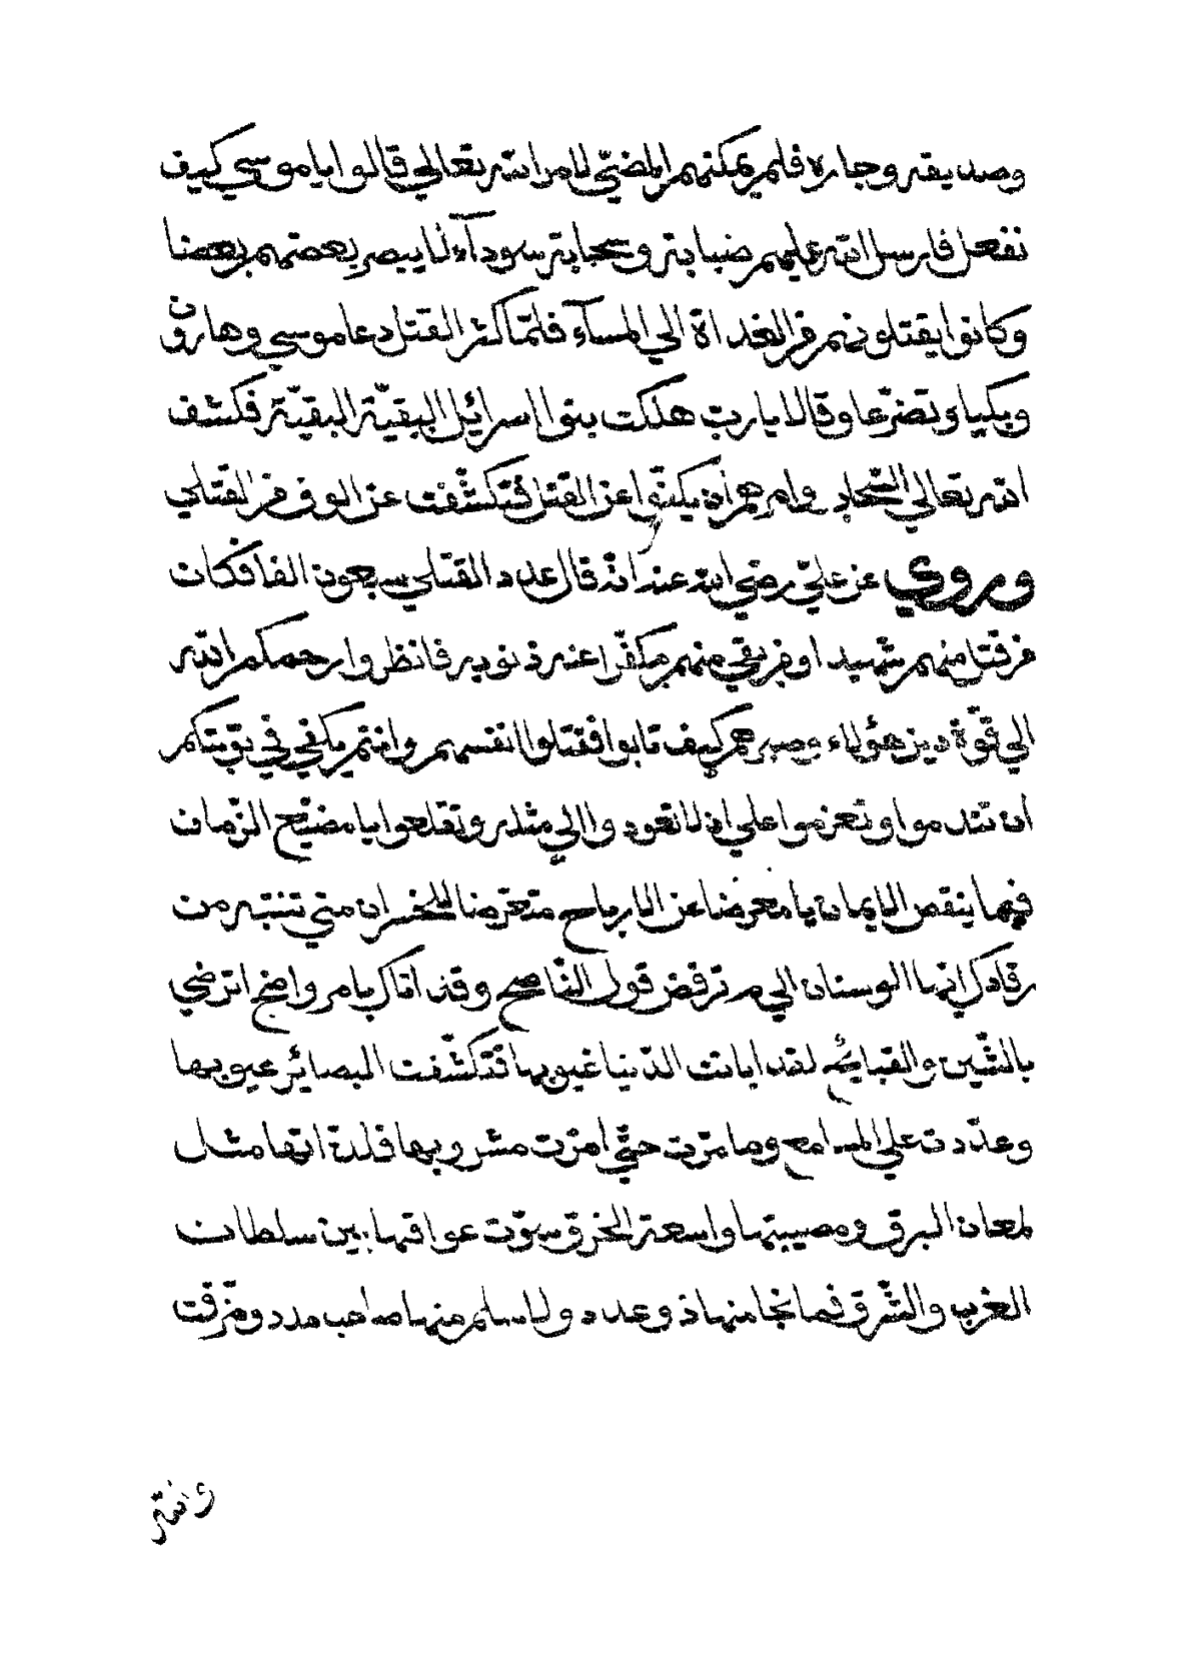 وصديقه وجاره فلم يمكنهم المضيّ لامر الله تعالى قالوا يا موسي كيف
نفعل فارسل الله عليهم ضبابة وسحابة سودآء لا يبصر بعضهم بعضا
وكانوا يقتلونهم من الغداة الي المسآء فلمّا كثر القتل دعا موسي وهارون
وبكيا وتضرّعا وقالا يا ربّ هلكت بنوا اسرائيل البقيّة البقيّة فكشف
الله تعالي السّحاب وامرهم ان يكفّوا عن القتل فتكشّفت عن الوف من القتلي
وروي عن عليّ رضي الله عنه انّه قال عدد القتلي سبعون الفا فكان
من قتل منهم شهيدا ومن بقي منهم مكفّرا عنه ذنوبه فانظروا رحمكم الله
الي قوّة دين هؤلاء وصبرهم كيف تابوا فقتلوا انفسهم وانتم يكفي في توبتكم
ان تندموا وتعزموا علي ان لا تعودوا الي مثله وتقلعوا يا مضيّع الزّمان
فيما ينقص الايمان يا معرضا عن الارباح متعرّضا للخسران متي تنتبه من
رقادك ايّها الوسنان الي م ترفض قول النّاصح وقد اتاك بامر واضح اترضي
بالشّين والقبايح لقد ابانت الدّنيا عيوبها فتكشّفت البصائر عيوبها
وعدّدت علي المسامع وما مرّت حتّي امرّت مشروبها فلذة انّها مثل
لمعان البرق ومصيبتها واسعة الخرق سوّت عواقبها بين سلطان
الغرب والشّرق فما نجا منها ذو عدد ولا سلم منها صاحب مدد ومزّقت